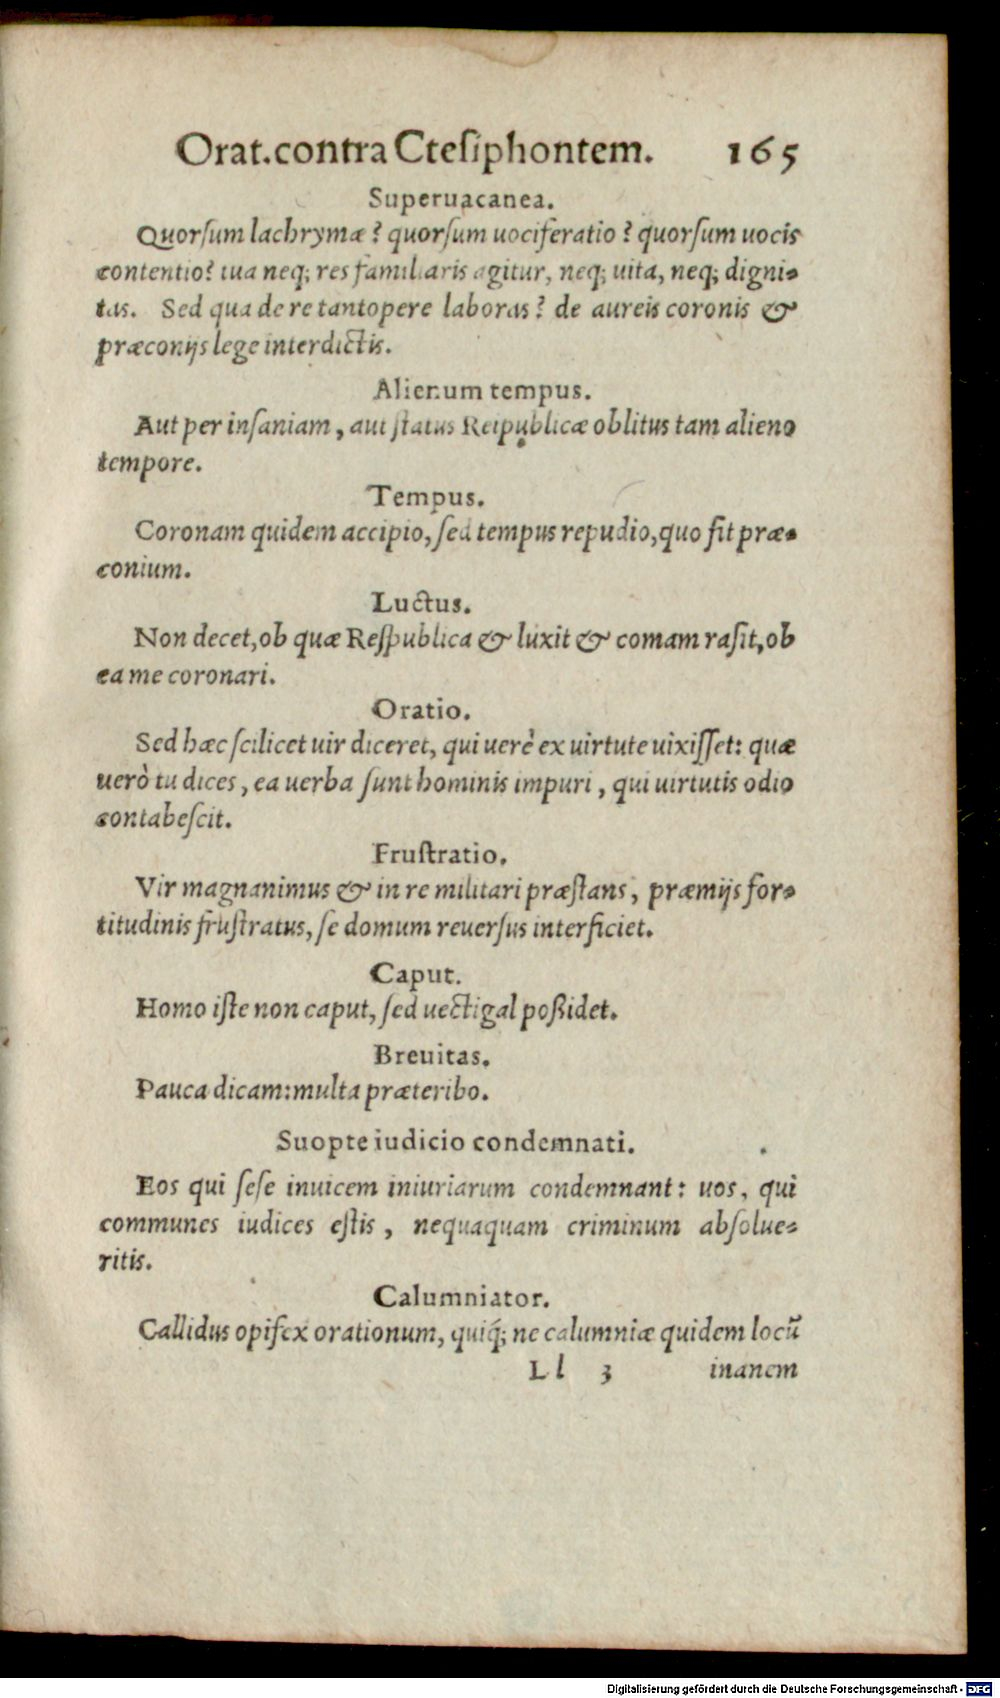 Orat. contra Ctesiphontem. 165
Superuacanea.
Quorſum lachrymæ? quorſum uociferatio? quorſum uocis
contentio? tua neq; res familiaris agitur, neq; uita, neq; digni-
tas. Sed qua de re tantopere laboras? de aureis coronis &
præconijs lege interdictis.
Alienum tempus.
Aut per inſaniam, aut ſtatus Reipublicæ oblitus tam alieno
tempore.
Tempus.
Coronam quidem accipio, ſed tempus repudio, quo fit præ-
conium.
Luctus.
Non decet, ob quæ Reſpublica & luxit & comam raſit, ob
ea me coronari.
Oratio.
Sed hæc ſcilicet uir diceret, qui uerè ex uirtute uixiſſet: quæ
uerò tu dices, ea uerba ſunt hominis impuri, qui uirtutis odio
contabeſcit.
Fruſtratio.
Vir magnanimus & in re militari præſtans, præmijs for-
titudinis fruſtratus, ſe domum reuerſus interficiet.
Caput.
Homo iſte non caput, ſed uectigal poßidet.
Breuitas.
Pauca dicam: multa præteribo.
Suopte iudicio condemnati.
Eos qui ſeſe inuicem iniuriarum condemnant: uos, qui
communes iudices eſtis, nequaquam criminum abſolue-
ritis.
Calumniator.
Callidus opifex orationum, quiq́; ne calumniæ quidem locũ
Ll 3 inanem
Digitalisierung gefördert durch die Deutsche Forschungsgemeinschaft - DFG